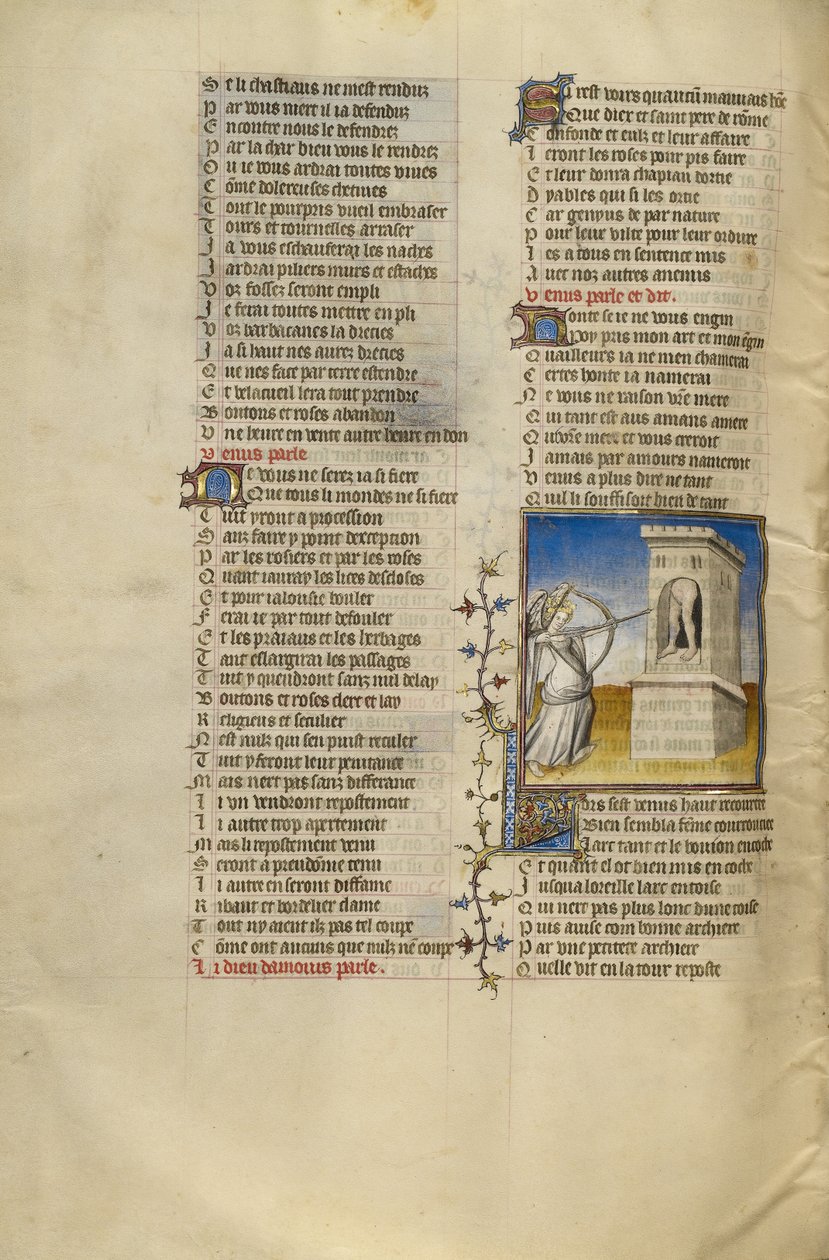 S e li chastiaus ne mest renduz
P ar vous mere il ia defenduz
E ncontre nous le defendrez
P ar la char dieu vous le rendrez
O u ie vous ardrai toutes viues
C õme dolereuses chetiues
T out le pourpris vueil embraser
T ours et tournelles arraser
J e vous eschauferai les naches
J ardrai piliers murs et estaches
V oz fossez seront empli
J e ferai toutes mettre en pli
V oz barbacanes la drecies
J a si haut nes aurez drecies
Q ue nes face par terre estendre
E t belacueil lera tout prendre
B outons et roses abandon
V ne heure en vente autre heure en don
V enus parle
N e vous ne serez ia si fiere
Que tous li mondes ne si fiere
T uit y ront a procession
S anz faire y point dexcepcion
P ar les rosiers et par les roses
Q uant iauray les lices descloses
E t pour ialousie bouler
F erai ie par tout defouler
E t les praiaus et les herbages
T ant eslargirai les passages
T uit y queudront sanz nul delay
B outons et roses clerc et lay
R eligieus et seculier
N est nulz qui sen puist reculer
T uit y feront leur penitance
M ais nert pas sanz differance
L i vn vendront repostement
L i autre trop apertement
M ais li repostement venu
S eront a preudõme tenu
L i autre en seront diffame
R ibaut et bordelier clame
T out ny aient ilz pas tel coupe
C õme ont aucuns que nulz nẽ coupe
L i dieu damours parle.
Si rest voirs quaucũ mauuais hõe
Que diex et saint pere de rõme
C onfonde et eulz et leur affaire
L eront les roses pour pis faire
E t leur donra chapiau dortie
D yables qui si les ortie
C ar genyus de par nature
P our leur vilte pour leur ordure
L es a tous en sentence mis
A uec noz autres anemis
V enus parle et dit.
Honte se ie ne vous engin
Poy pris mon art et mon ẽgin
Q uailleurs ia ne men clamerai
C ertes honte ia namerai
N e vous ne raison vr̃e mere
Q ui tant est aus amans amere
Q ui vr̃e mere et vous creroit
J amais par amours nameroit
V enus a plus dire ne tant
Q uil li souffisoit bien de tant
Lors sest venus haut recourcie
Bien sembla fẽme courroucie
Larc tant et le boujon encoche
E t quant el ot bien mis en coche
J usqua loreille larc entoise
Q ui nert pas plus lonc dune toise
P uis auise com bonne archiere
P ar vne petitete archiere
Q uelle vit en la tour reposte